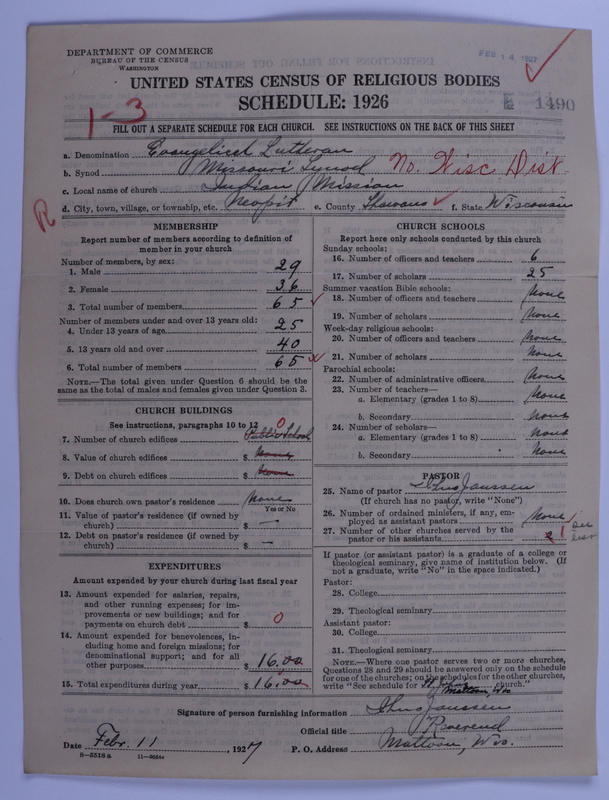 DEPARTMENT OF COMMERCE
BUREAU OF THE CENSUS
WASHINGTON
FEB 14 1927
UNITED STATES CENSUS OF RELIGIOUS BODIES
SCHEDULE: 1926
1-3
1490
FILL OUT A SEPARATE SCHEDULE FOR EACH CHURCH. SEE INSTRUCTIONS ON THE BACK OF THIS SHEET
a. Denomination Evangelical Lutheran
b. Synod Missouri Synod No. Wisc Dist.
c. Local name of church Indian Mission
R
d. City, town, village, or township, etc. Neopit e. County Shawano f. State Wisconsin
MEMBERSHIP
Report number of members according to definition of
member in your church
Number of members, by sex:
1. Male 29
2. Female 36
3. Total number of members 65
Number of members under and over 13 years old:
4. Under 13 years of age 25
5. 13 years old and over 40
6. Total number of members 65
NOTE.—The total given under Question 6 should be the
same as the total of males and females given under Question 3.
CHURCH BUILDINGS
See instructions, paragraphs 10 to 12 0
7. Number of church edifices Public School
8. Value of church edifices $ None
9. Debt on church edifices $ None
10. Does church own pastor's residence None
Yes or No
11. Value of pastor's residence (if owned by
church) $ —
12. Debt on pastor's residence (if owned by
church) $ —
EXPENDITURES
Amount expended by your church during last fiscal year
13. Amount expended for salaries, repairs,
and other running expenses; for im-
provements or new buildings; and for
payments on church debt $ 0
14. Amount expended for benevolences, in-
cluding home and foreign missions; for
denominational support; and for all
other purposes $ 16.00
15. Total expenditures during year $ 16.00
CHURCH SCHOOLS
Report here only schools conducted by this church
Sunday schools:
16. Number of officers and teachers 6
17. Number of scholars 25
Summer vacation Bible schools:
18. Number of officers and teachers None
19. Number of scholars None
Week-day religious schools:
20. Number of officers and teachers None
21. Number of scholars None
Parochial schools:
22. Number of administrative officers None
23. Number of teachers—
a. Elementary (grades 1 to 8) None
b. Secondary None
24. Number of scholars—
a. Elementary (grades 1 to 8) None
b. Secondary None
PASTOR
25. Name of pastor Theo Janssen
(If church has no pastor, write "None")
26. Number of ordained ministers, if any, em-
ployed as assistant pastors None
27. Number of other churches served by the
pastor or his assistants 2 1
If pastor (or assistant pastor) is a graduate of a college or
theological seminary, give name of institution below. (If
not a graduate, write "No" in the space indicated.)
Pastor:
28. College
29. Theological seminary
Assistant pastor:
30. College
31. Theological seminary
NOTE.—Where one pastor serves two or more churches,
Questions 28 and 29 should be answered only on the schedule
for one of the churches; on the schedules for the other churches,
write "See schedule for church."
Mattoon, Wis
Signature of person furnishing information Theo Janssen
Official title Reverend
Date Febr. 11, 1927 P. O. Address Mattoon, Wis.
8—5518a 11—9654